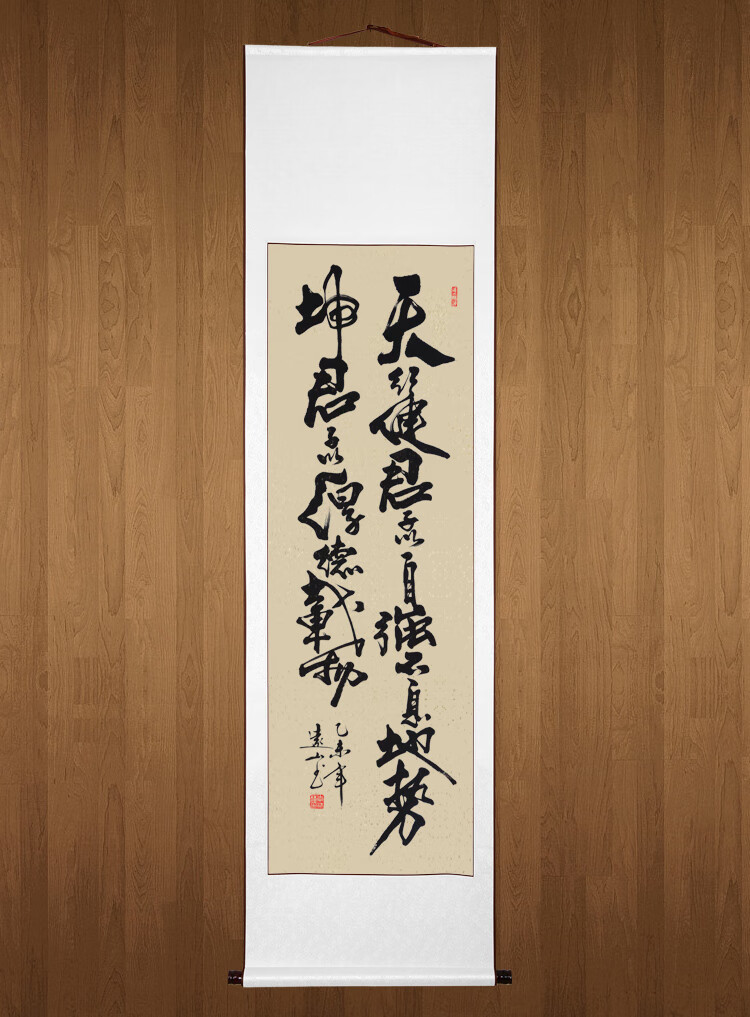 天行健君子以自强不息地势
坤君子以厚德载物
乙未年
远山书